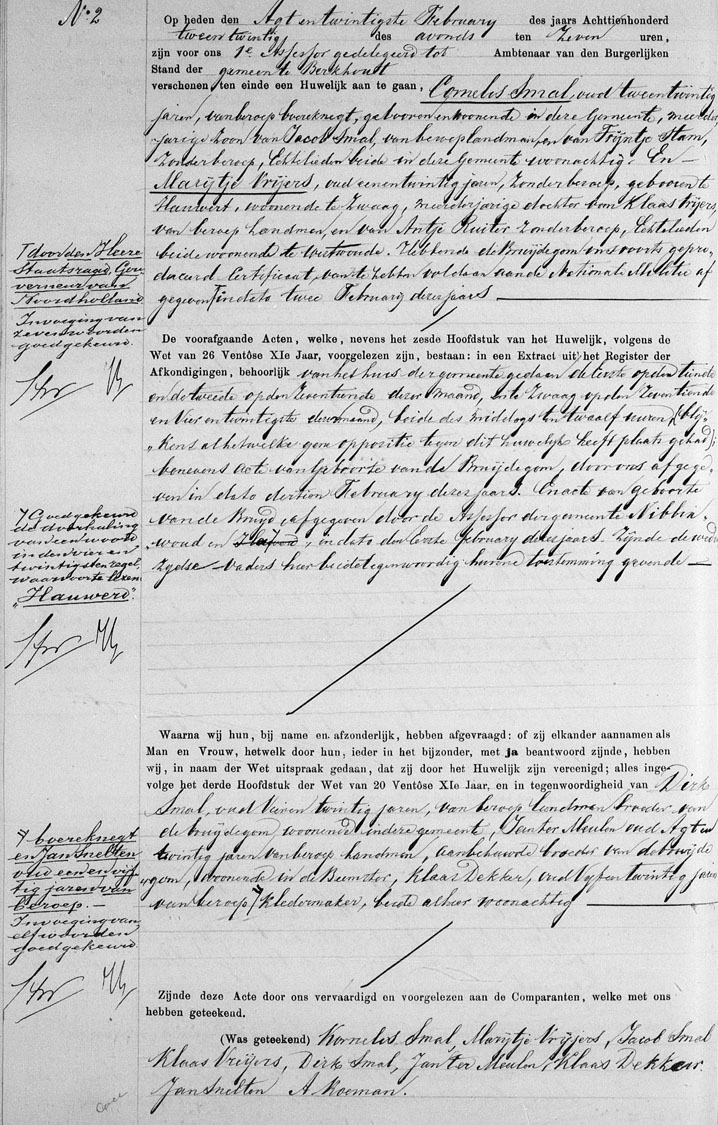 N.o 2
Op heden den Agt en twintigste February des jaars Achttienhonderd
tweeentwintig des avonds ten Zeven uren,
zijn voor ons 1e Assessor gedelegeerd tot Ambtenaar van den Burgerlijken
Stand der gemeente Berkhout
verschenen ten einde een Huwelijk aan te gaan, Cornelis Smal, oud tweentwintig
jaren, van beroep boereknegt, gebooren en woonende in deze Gemeente, meerder
jarige Zoon van Jacob Smal, van beroep landman, en van Trijntje Stam,
Zonder beroep, Echtelieden beide in deze Gemeente woonachtig. En
Marijtje Vrijers, oud eenentwintig jaren, Zonder beroep, gebooren te
Hauwert, woonende te Zwaag, meerderjarige dochter van Klaas Vrijers,
van beroep Landman, en van Antje Ruiter Zonder beroep, Echtelieden
beide woonende te Westwoude. Hebbende de Bruijdegom insvoorts gepro-
duceerd Certificaat, van te hebben voldaan aan de Nationale Militie af
gegeven in dato twee February dezes jaars
De voorafgaande Acten, welke, nevens het zesde Hoofdstuk van het Huwelijk, volgens de
Wet van 26 Ventôse XIe Jaar, voorgelezen zijn, bestaan: in een Extract uit het Register der
Afkondigingen, behoorlijk van het huis der gemeente gedaan de eerste op den tiende
en de tweede op den Zeventiende dezer maand, en te Zwaag op den Zeventiende
en Vier en twintigste dezer maand, beide des middags ten twaalf uuren, (blij-
kens al hetwelke geen oppositie tegen dit huwelijk heeft plaats gehad);
benevens acte van Geboorte van de Bruijdegom, door ons afgege-
ven in dato dertien February dezes jaars. En acte van geboorte
van de Bruid, afgegeven door de Assessor der gemeente Nibbix-
woud en, in dato den Eerste February dezes jaars. Zijnde de weder
zijdse Vaders hier beide tegenwoordig hunne toestemming gevende
Waarna wij hun, bij name en afzonderlijk, hebben afgevraagd: of zij elkander aannamen als
Man en Vrouw, hetwelk door hun, ieder in het bijzonder, met ja beantwoord zijnde, hebben
wij, in naam der Wet uitspraak gedaan, dat zij door het Huwelijk zijn vereenigd; alles inge-
volge het derde Hoofdstuk der Wet van 20 Ventôse XIe Jaar, en in tegenwoordigheid van Dirk
Smal, oud Vieren twintig jaren, van beroep landman broeder van
de bruijdegom woonende in deze gemeente, Jan ter Meulen oud Agt en
twintig jaren van beroep landman, aanbehuwde broeder van de bruijde
gom, woonende in de Beemster, Klaas Dekker, oud Vyf en twintig jaren
van beroep kledermaker, beide alhier woonachtig
Zijnde deze Acte door ons vervaardigd en voorgelezen aan de Comparanten, welke met ons
hebben geteekend.
(Was geteekend) Kornelis Smal, Marijtje Vrijers, Jacob Smal
Klaas Vreijers, Dirk Smal, Jan ter Meulen, Klaas Dekker
Jan Snelten A Kooman.
door den Heere
Staatsraad Gou-
verneur van
Noordholland
Invoeging van
zeven woorden
goedgekeurd.
Goedgekeurd
de doorhaling
van een woord
in den vier en
twintigsten regel,
waarvoor te lezen
"Hauwerd".
boereknegt
en Jan Snelten
oud een en vijf-
tig jaren van
beroep.
Invoeging van
elf woorden
goedgekeurd